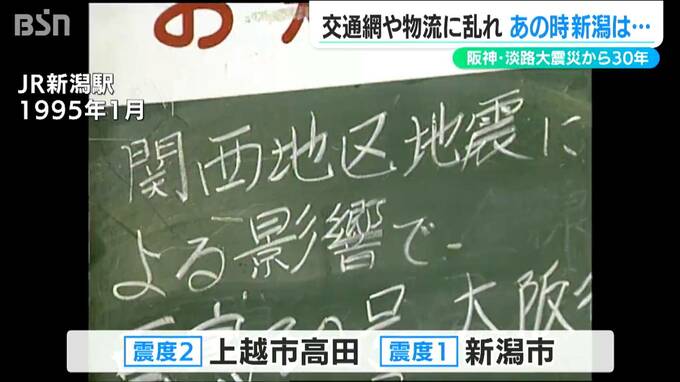 BSN
交通網や物流に乱れ あの時新潟は…
阪神・淡路大震災から30年
JR新潟駅
1995年1月
関西地区地震に
よる影響で
大阪
震度2 上越市高田 震度1 新潟市